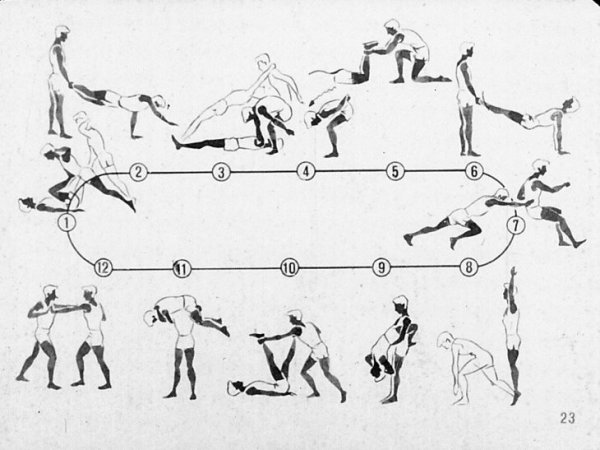 2 3 4 5 6
1 7
12 11 10 9 8
23